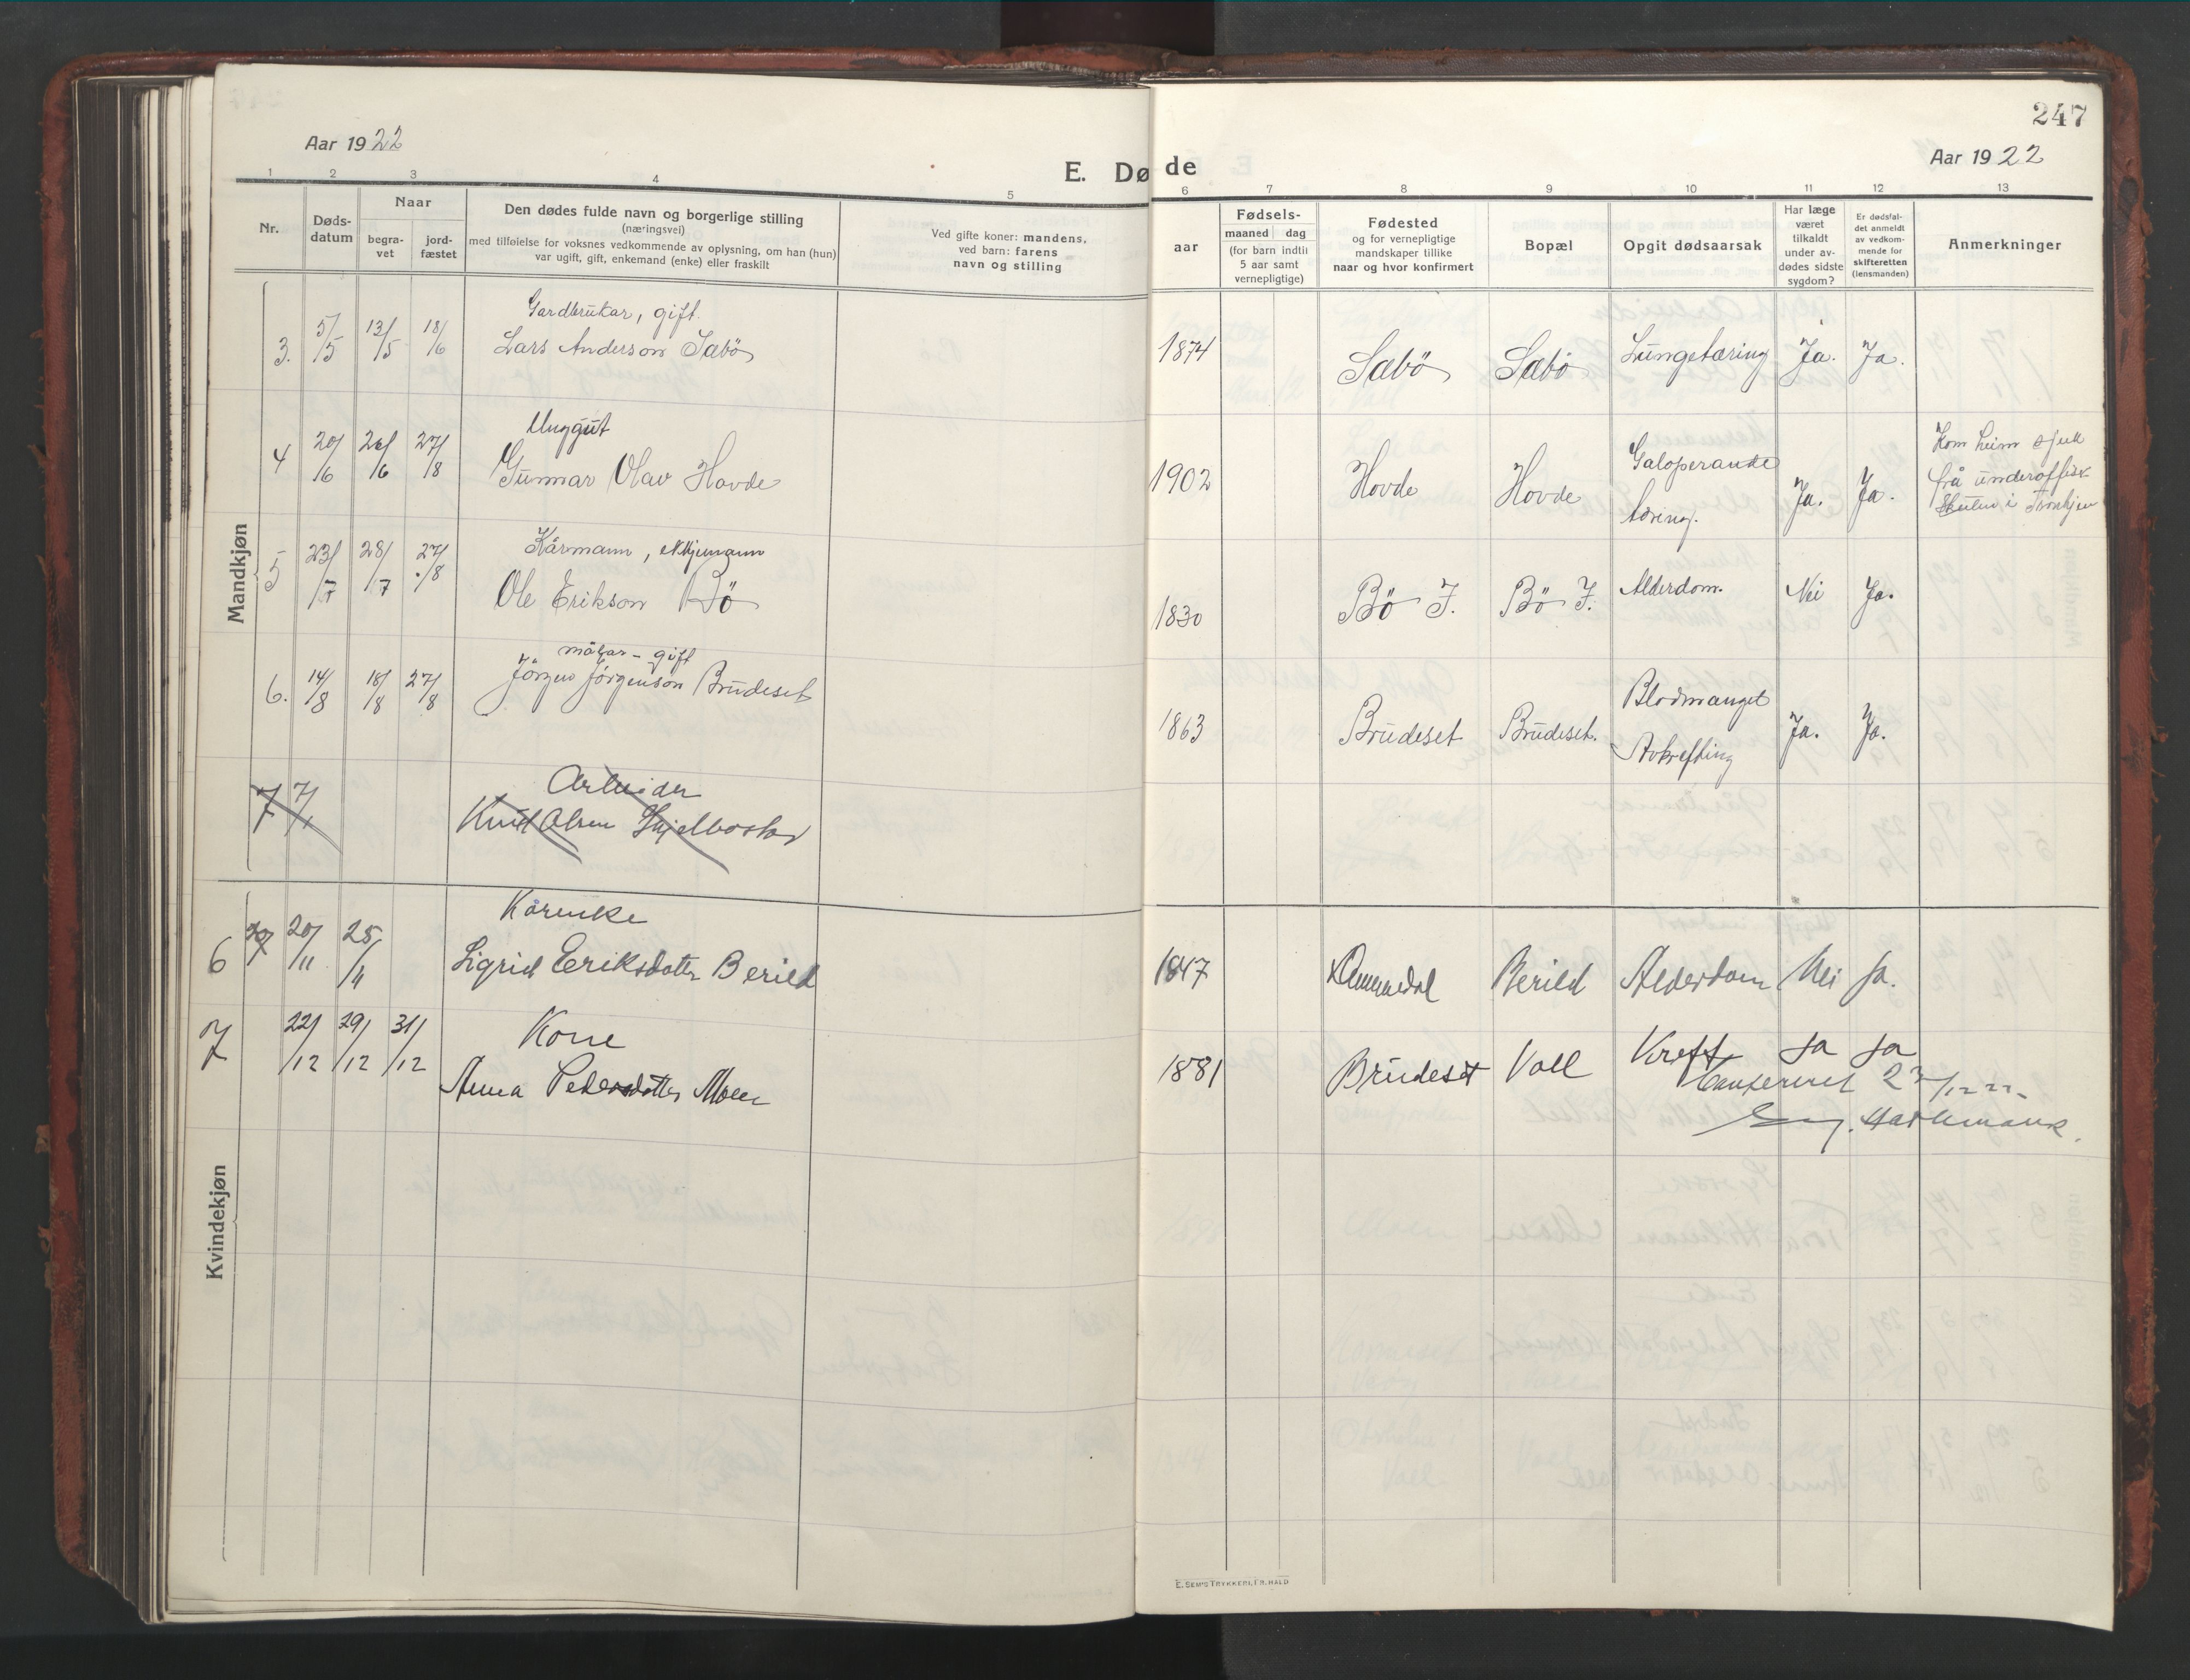 247
Aar 1922
Aar 1922
E. Døde
1 2 3 4 5 6 7 8 9 10 11 12 13
Nr.
Døds-
datum
Naar
begra-
vet
jord-
fæstet
Den dødes fulde navn og borgerlige stilling
(næringsvei)
med tilføielse for voksnes vedkommende av oplysning, om han (hun)
var ugift, gift, enkemand (enke) eller fraskilt
Ved gifte koner: mandens,
ved barn: farens
navn og stilling
aar
Fødsels-
maaned dag
(for barn indtil
5 aar samt
vernepligtige)
Fødested
og for vernepligtige
mandskaper tillike
naar og hvor konfirmert
Bopæl
Opgit dødsaarsak
Har læge
været
tilkaldt
under av-
dødes sidste
sygdom?
Er dødsfal-
det anmeldt
av vedkom-
mende for
skifteretten
(lensmanden)
Anmerkninger
Mandkjøn
Gardbrukar, gift.
3. 5/5 13/5 18/6 Lars Anderson Sæbö 1874 Sæbö Sæbö Lungetæring Ja. Ja.
Unggut
4 20/6 26/6 27/8 Gunnar Olav Hovde 1902 Hovde Hovde Galoperande
tæring. Ja. Ja.
Kom heim sjuk
frå underoffisk
skulen i Tronhjem
Kårmann, ekkjemann
5 23/7 28/7 27/8 Ole Erikson Bö 1830 Bö I. Bö I. Alderdom. Nei Ja.
målar - gift
6. 14/8 18/8 27/8 Jörgen Jörgenson Brudeset 1863 Brudeset Brudeset. Blodmangel
Avkrefting Ja. Ja.
Arbeider
7 7/1 Knut Olsen Skjelbostad
Kvindekjøn
Kårenke
6 20/11 25/11 Sigrid Eriksdatter Berild 1847 Berild Alderdom Nei Ja.
Kone
7 22/12 29/12 31/12 Anna Pedersdatter Moen 1881 Brudeset Voll Kreft Ja Ja
Conferert 23/12 22.
E. SEM'S TRYKKERI, FR.HALD